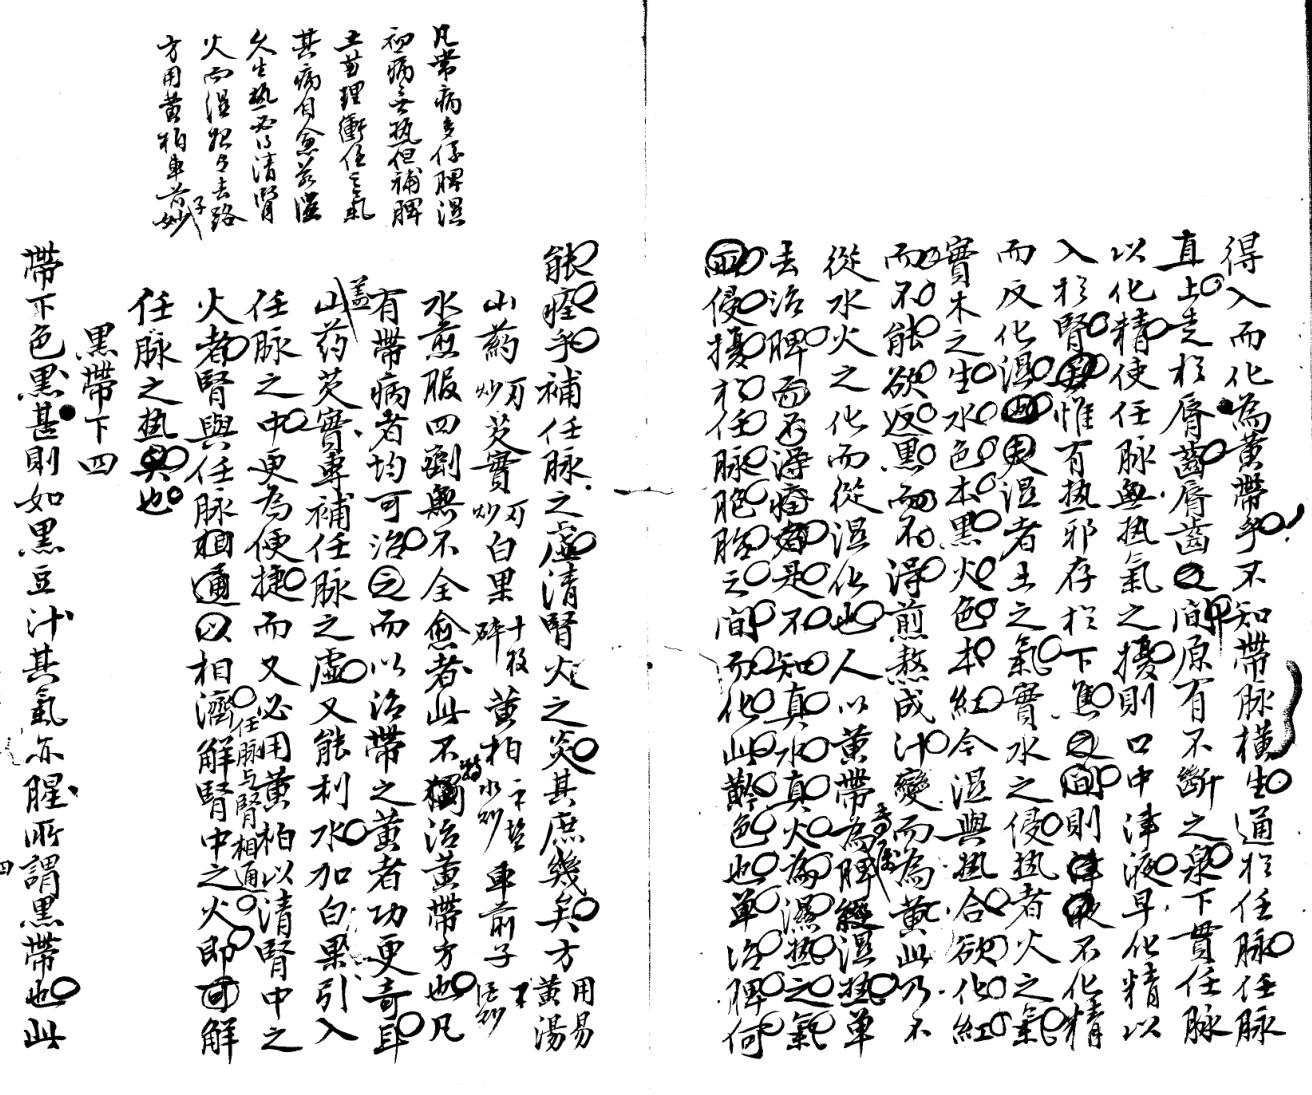 得入而化為黃帶乎不知帶脉橫生通於任脉任脉
直上走於唇齒唇齒之間原有不斷之泉下貫任脉
以化精使任脉無热氣之擾則口中津液早化精以
入於腎矣惟有热邪存於下焦之間則津液不化精
而反化湿也夫湿者土之氣實水之侵热者火之氣
實木之生水色本黑火色本紅今湿與热合欲化紅
而不能欲返黑而不得煎熬成汁變而為黃此乃不
從水火之化而從湿化也人以黃帶為脾經湿热單
去治脾而不得痊者是不知真水真火為濕热之氣
而侵擾於任脉胞胎之间而化此黅色也單治脾何
能痊乎補任脉之虛清腎火之炎其庶幾矣方用易黃湯
山葯炒 芡實炒 白果十枚碎 黃柏水炒 車前子
水煎服四劑無不全愈者此不獨治黃帶方也凡
有帶病者均可治之而以治帶之黃者功更奇耳
蓋山药芡實專補任脉之虛又能利水加白果引入
任脉之中更為便捷而又必用黃柏以清腎中之
火者腎與任脉相通以相濟解腎中之火即可解
任脉与腎相通
任脉之热矣也
黑帶下四
帶下色黑甚則如黑豆汁其氣亦腥所謂黑帶也此
四
凡帶病多係脾湿
初病無热但補脾
土兼理衝任之氣
其病自愈若湿
久生热必须清腎
火而湿始有去路
方用黃柏車前子妙